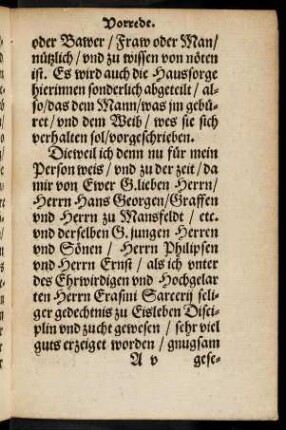 Vorrede.
oder Bawer / Fraw oder Man /
nützlich / vnd zu wissen von nöten
ist. Es wird auch die Haussorge
hierinnen sonderlich abgeteilt / al-
so / das dem Mann / was jm gebü-
ret / vnd dem Weib / wes sie sich
verhalten sol / vorgeschrieben.
Dieweil ich denn nu für mein
Person weis / vnd zu der zeit / da
mir von Ewer G. lieben Herrn /
Herrn Hans Georgen / Graffen
vnd Herrn zu Mansfeldt / etc.
vnd derselben G. jungen Herren
vnd Sönen / Herrn Philipsen
vnd Herrn Ernst / als ich vnter
des Ehrwirdigen vnd Hochgelar
ten Herrn Erasmi Sarcerij seli-
ger gedechtnis zu Eisleben Disci-
plin vnd zucht gewesen / sehr viel
guts erzeiget worden / gnugsam
A v gese-